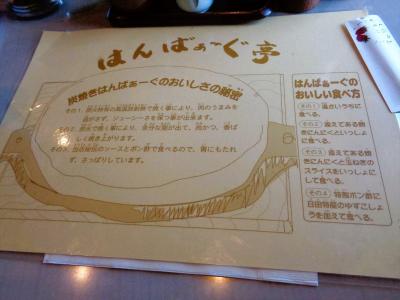 はんばぁーぐ亭
炭焼きはんばぁーぐのおいしさの秘密
その1. 炭火特有の高温放射熱で焼く事により、肉のうまみを
逃がさず、ジューシーさを保つ事が出来ます。
その2. 炭火で焼く事により、余分な脂が出て、肉かつ、香ば
しく焼き上がります。
その3. 当店特製のソースとポン酢で食べるので、胃にもたれ
ず、さっぱりしています。
はんばぁーぐの
おいしい食べ方
その1 温かいうちに
食べる。
その2 添えてある焼
きにんにくといっしょ
に食べる。
その3 添えてある焼
きにんにくと玉ねぎの
スライスをいっしょに
して食べる。
その4 特製ポン酢に
日田特産のゆずこしょ
うを加えて食べる。